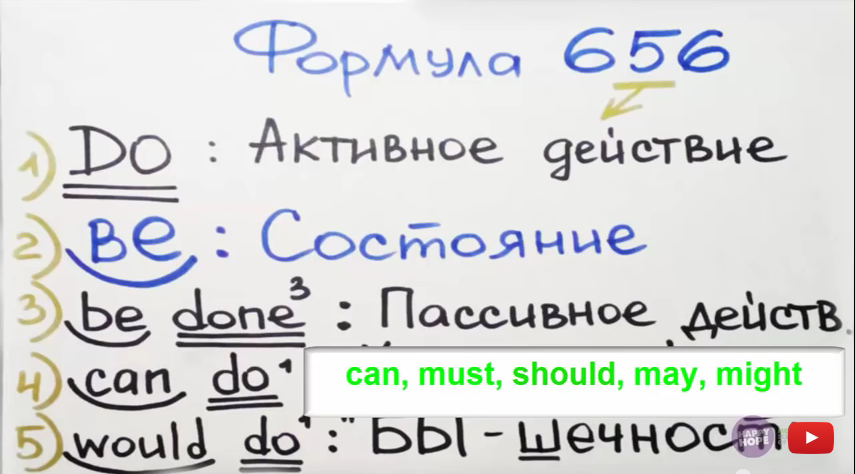 Формула 656
1) DO : Активное действие
2) be : Состояние
3) be done³ : Пассивное действ.
4) can do¹
can, must, should, may, might
5) would do¹ : "БЫ-шечност
HAPPY HOPE